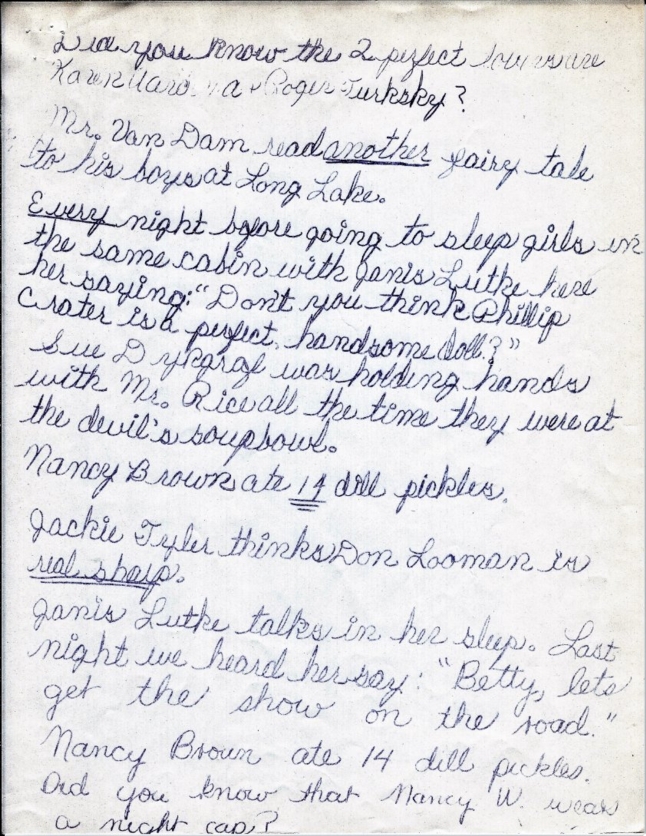 Did you know the 2 perfect lovers are
Karen a + Roger Turksky?
Mr. Van Dam read another fairy tale
to his boys at Long Lake.
Every night before going to sleep girls in
the same cabin with Janis Luthe here
her saying: "Don't you think Phillip
Crater is a perfect, handsome doll?"
Sue Dykgraf was holding hands
with Mr. Rice all the time they were at
the devil's soupbowl.
Nancy Brown ate 14 dill pickles.
Jackie Tyler thinks Don Looman is
real sharp.
Janis Luthe talks in her sleep. Last
night we heard her say: "Betty, lets
get the show on the road."
Nancy Brown ate 14 dill pickles.
Did you know that Nancy W. wears
a night cap?